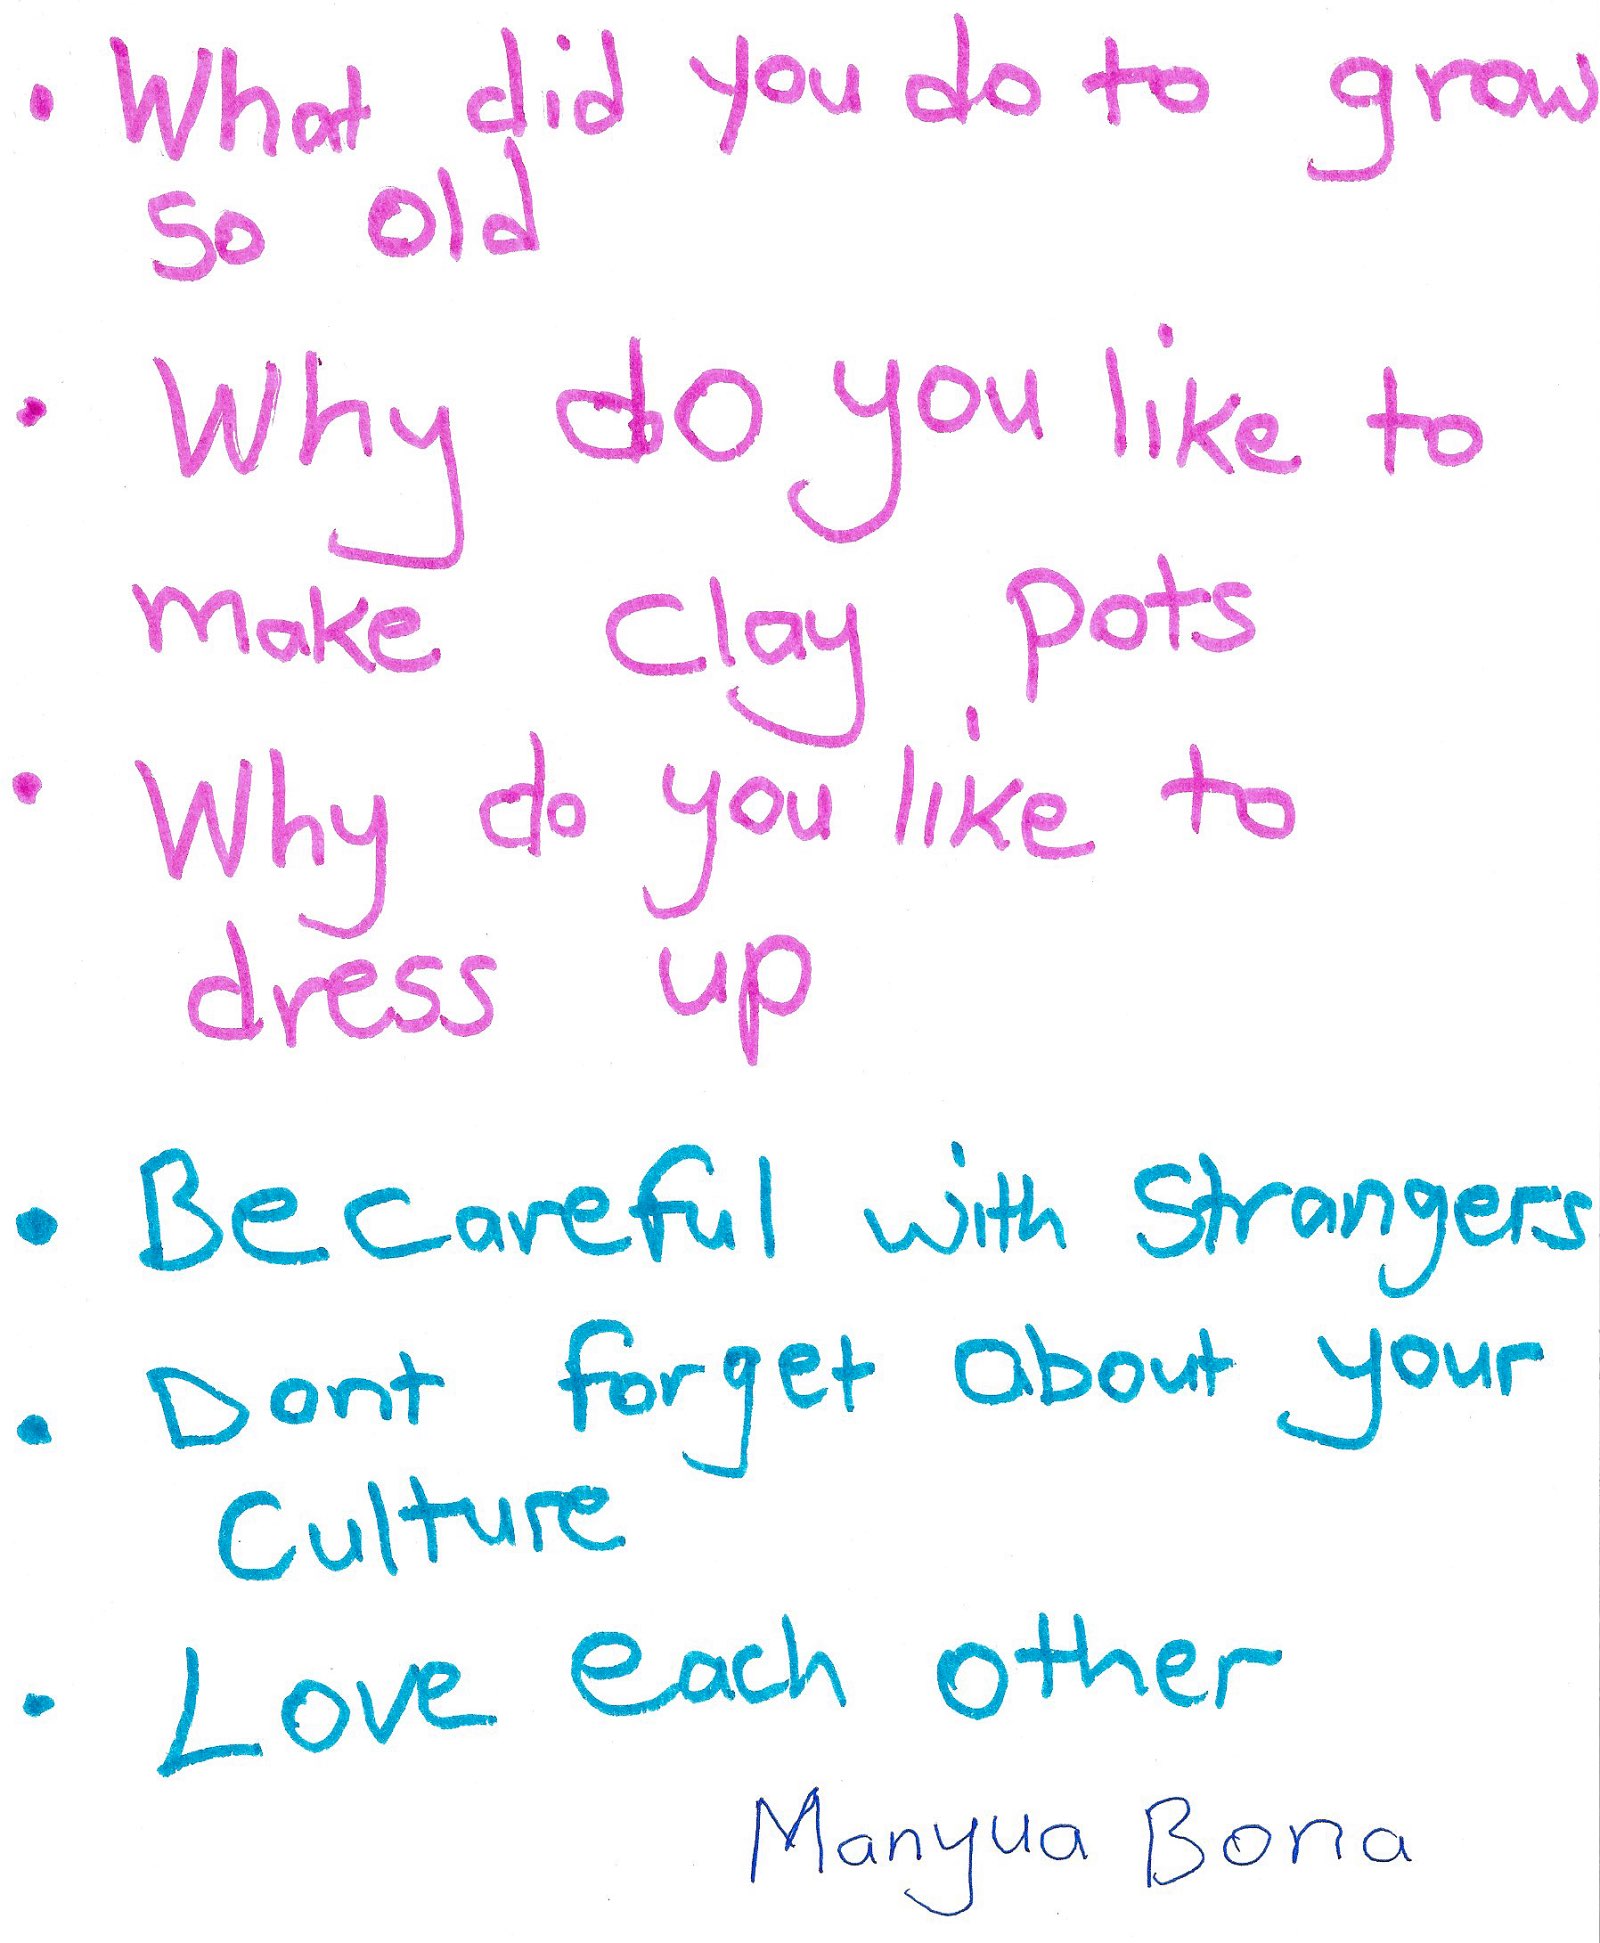 • What did you do to grow
so old
• Why do you like to
make clay pots
• Why do you like to
dress up
• Be careful with Strangers
• Dont forget about your
Culture
• Love each other
Manyua Bona